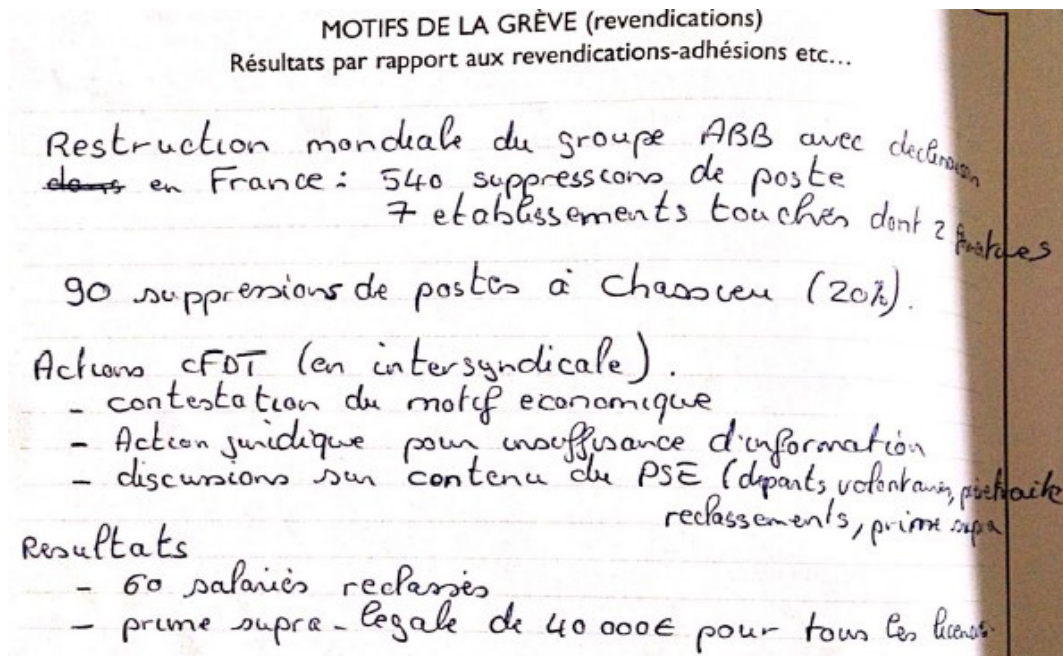 MOTIFS DE LA GRÈVE (revendications)
Résultats par rapport aux revendications-adhésions etc...
Restruction mondiale du groupe ABB avec declinaison
dans en France : 540 suppressions de poste
7 etablissements touchés dont 2
90 suppressions de postes à Chassieu (20%).
Actions CFDT (en intersyndicale).
- contestation du motif economique
- Action juridique pour insuffisance d'information
- discussions sur contenu du PSE (departs volontaires, préretraite
reclassements, prime supra
Resultats
- 60 salariés reclassés
- prime supra-legale de 40 000€ pour tous les